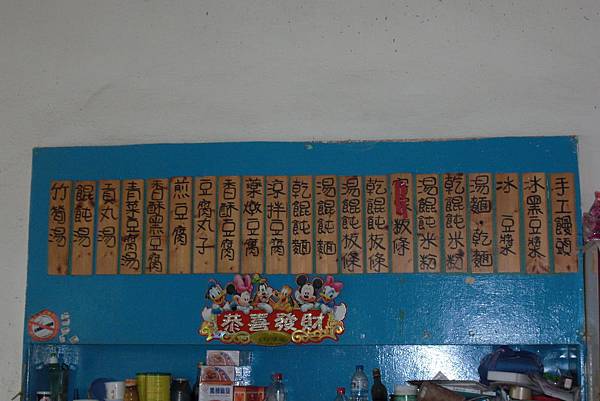 手工饅頭
冰黑豆漿
冰 豆漿
湯麵·乾麵
乾餛飩米粉
湯餛飩米粉
粄條
乾餛飩粄條
湯餛飩粄條
湯餛飩麵
乾餛飩麵
涼拌豆腐
藥燉豆腐
香酥豆腐
豆腐丸子
煎豆腐
香酥豆腐
青菜豆腐湯
貢丸湯
餛飩湯
竹筍湯
恭喜發財